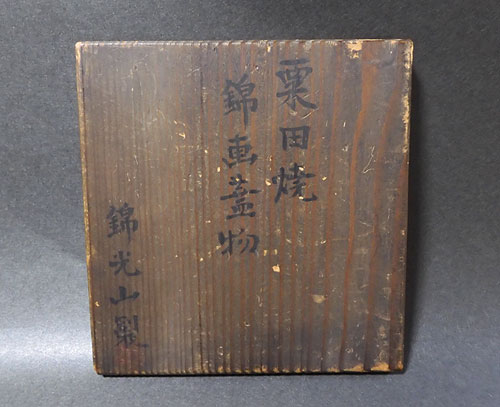 粟田焼
錦画蓋物
錦光山製